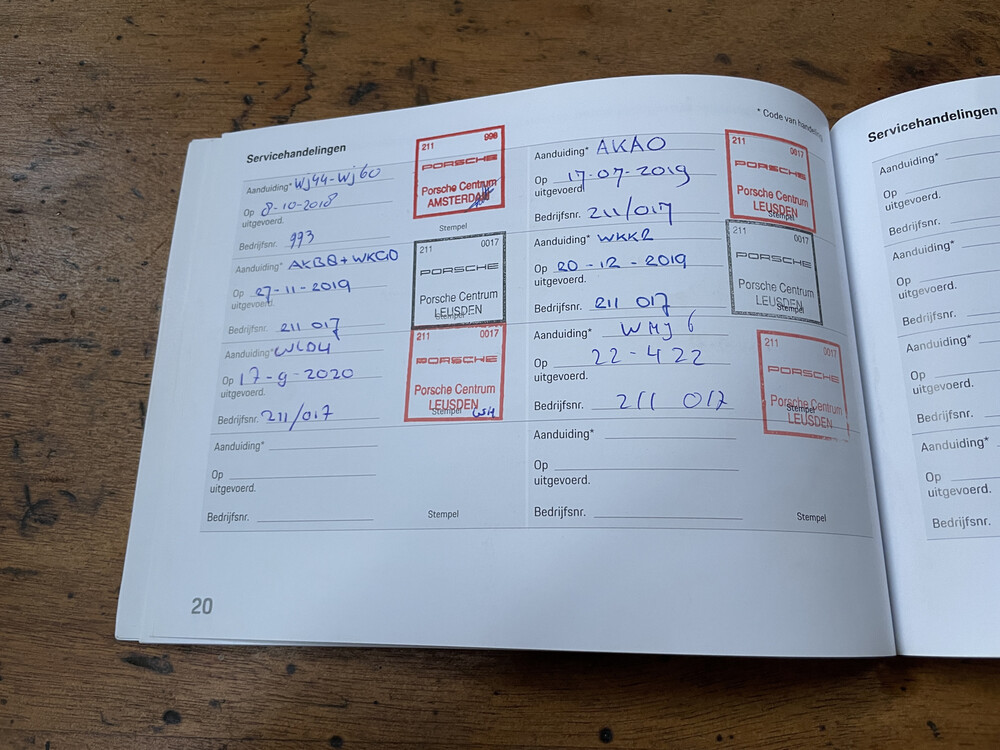 * Code van handeling
Servicehandelingen
Aanduiding* Wj44-Wj60
Op 8-10-2018
uitgevoerd.
Bedrijfsnr. 993
211
PORSCHE
Porsche Centrum
AMSTERDAM
Stempel
Aanduiding* AKAO
Op 17-07-2019
uitgevoerd
Bedrijfsnr. 211/017
211 0017
PORSCHE
Porsche Centrum
LEUSDEN
Stempel
Aanduiding*
Op 27-11-2019
uitgevoerd.
Bedrijfsnr. 211 017
211 0017
PORSCHE
Porsche Centrum
LEUSDEN
Stempel
Aanduiding* WKK2
Op 20-12-2019
uitgevoerd.
Bedrijfsnr. 211 017
211 0017
PORSCHE
Porsche Centrum
LEUSDEN
Stempel
Aanduiding* WLD4
Op 17-9-2020
uitgevoerd.
Bedrijfsnr. 211/017
211 0017
PORSCHE
Porsche Centrum
LEUSDEN
Stempel
Aanduiding* WMj6
Op 22-4 22
uitgevoerd.
Bedrijfsnr. 211 017
211 0017
PORSCHE
Porsche Centrum
LEUSDEN
Stempel
Aanduiding*
Op
uitgevoerd.
Bedrijfsnr.
Stempel
Aanduiding*
Op
uitgevoerd.
Bedrijfsnr.
Stempel
20
Servicehandelingen
Aanduiding*
Op
uitgevoerd.
Bedrijfsnr.
Aanduiding*
Op
uitgevoerd.
Bedrijfsnr.
Aanduiding*
Op
uitgevoerd.
Bedrijfsnr.
Aanduiding*
Op
uitgevoerd.
Bedrijfsnr.